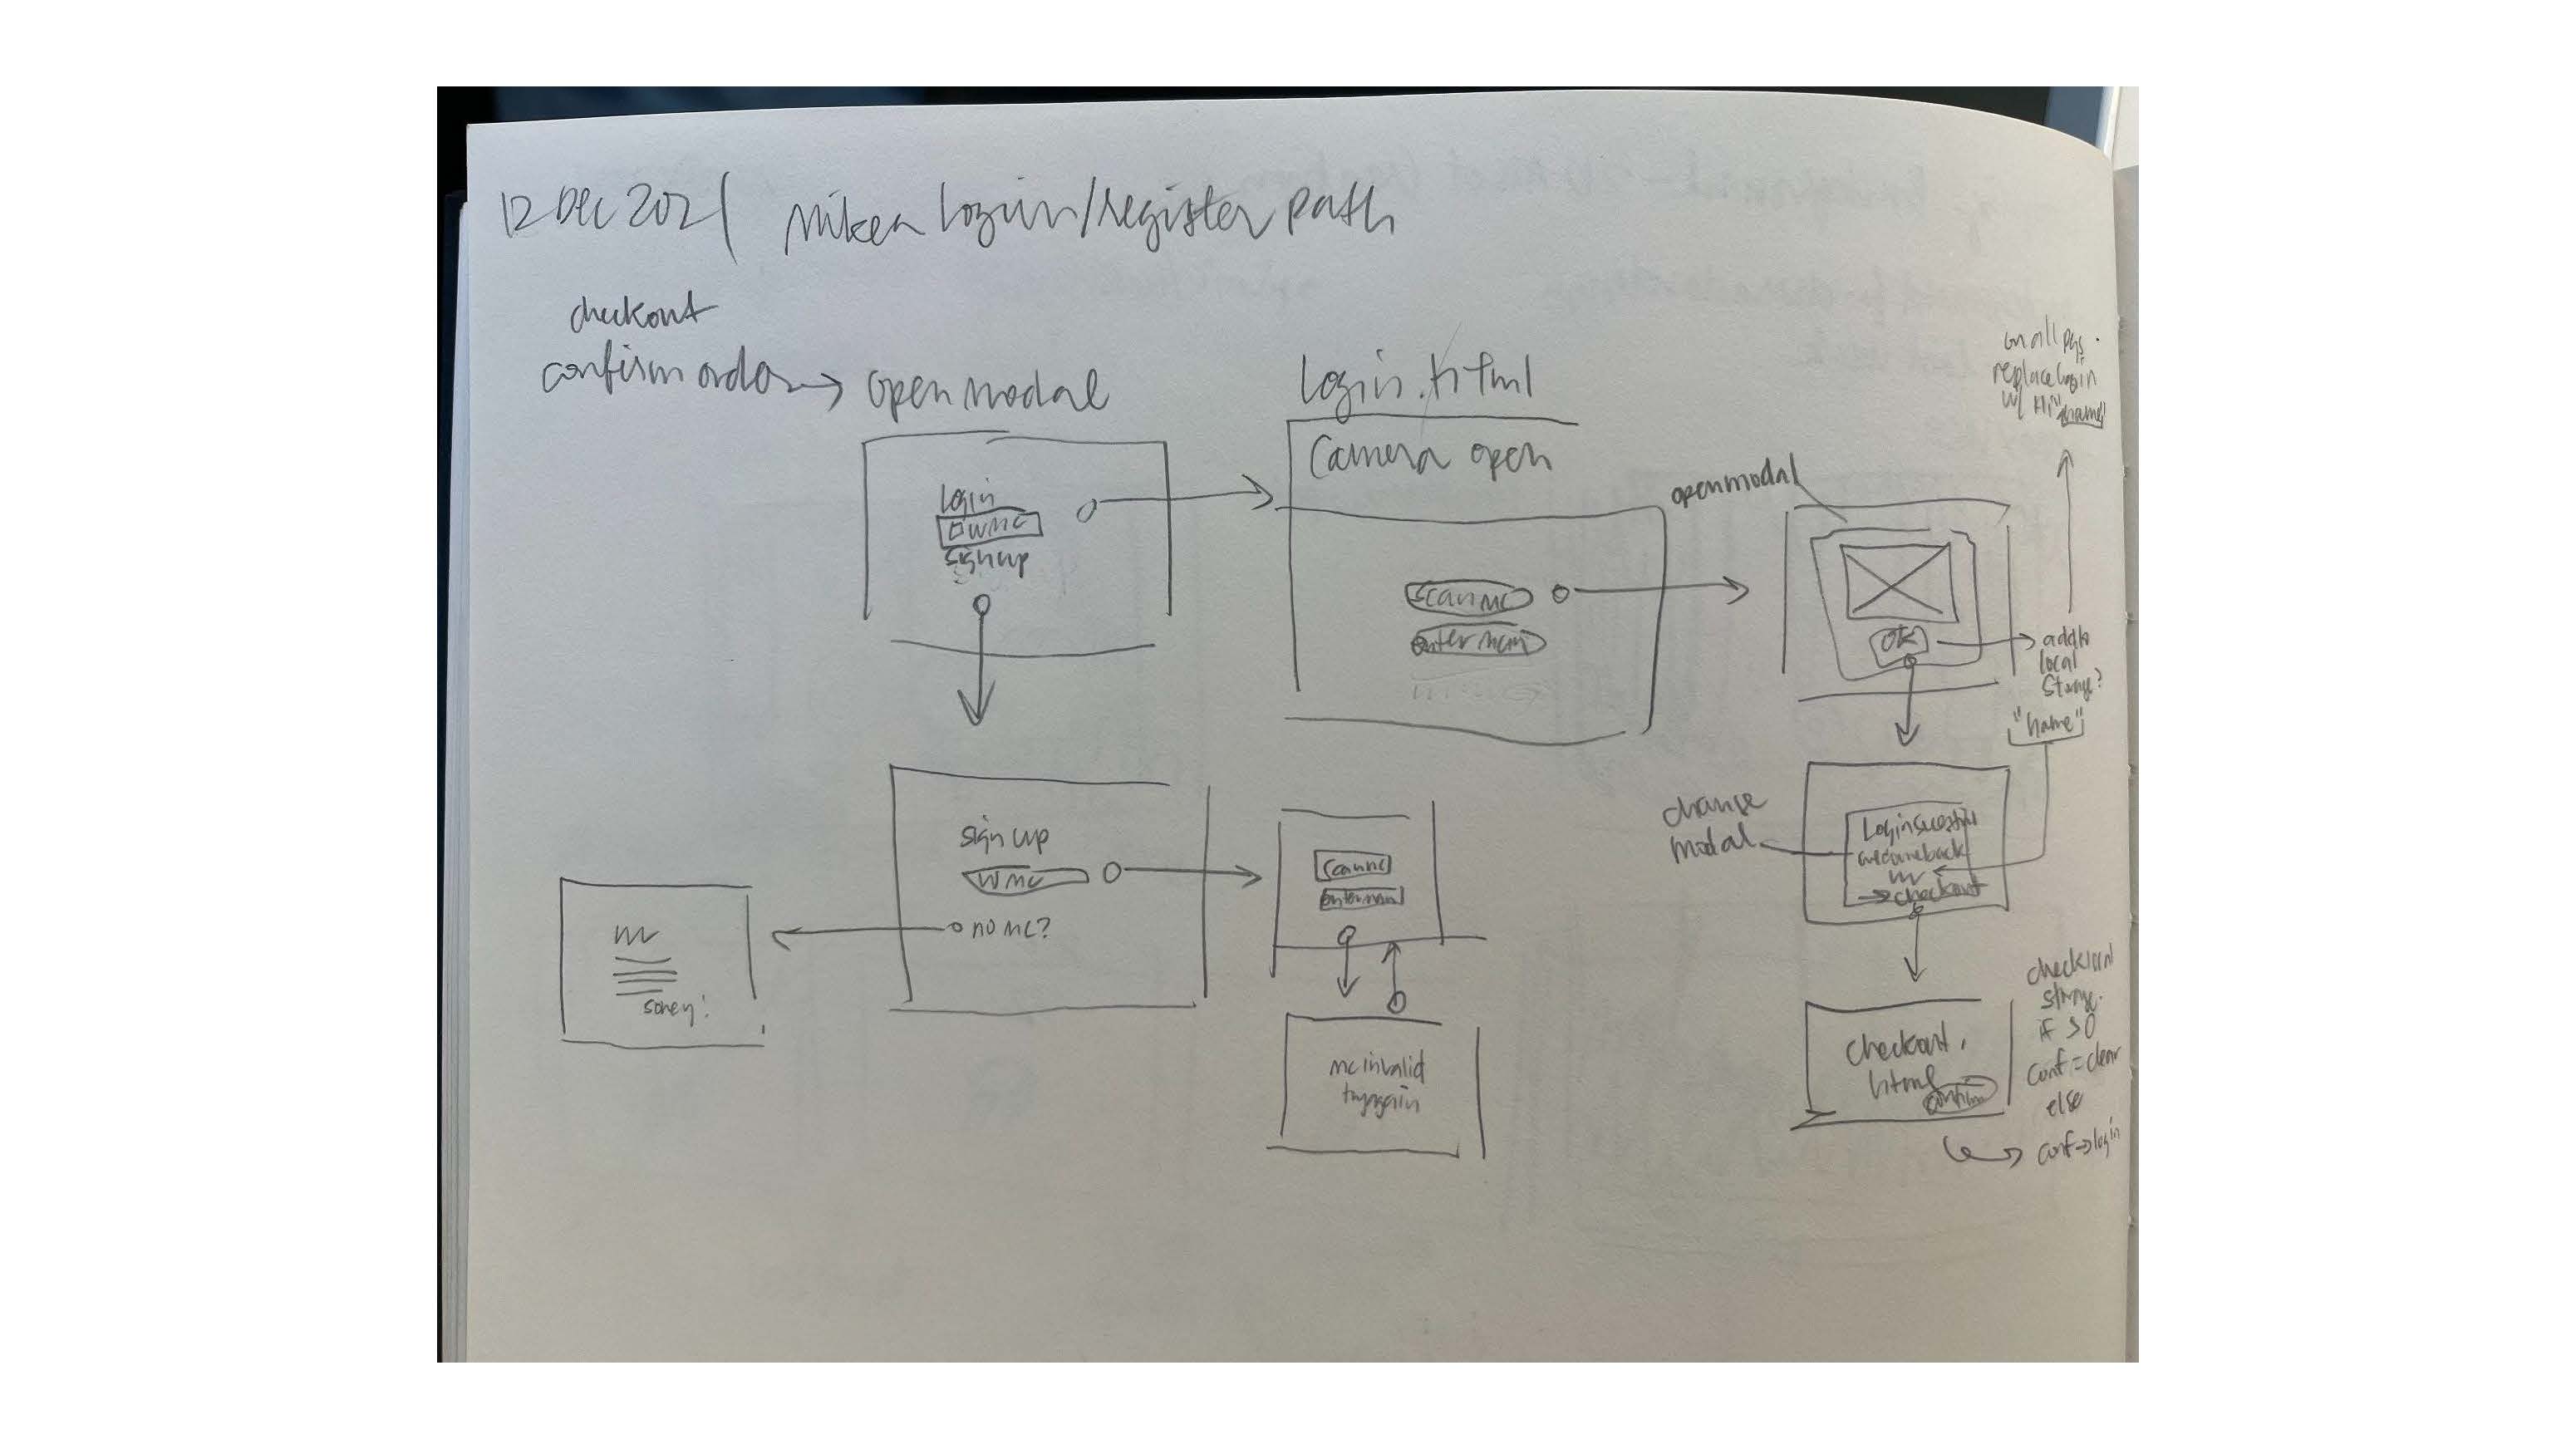 12 Dec 2021 Mikea Login/register path
checkout
confirm order → open modal
login
w MC
sign up
login.html
Camera open
scan MC
enter
open modal
OK
add to
local
storage?
"name"
on all pgs.
replace login
w/ Hi "name"
sign up
w MC
no MC?
sorry!
scan MC
enter
mc invalid
try again
change
modal
Login successful
welcome back
→ checkout
checkout.
html
confirm
check local
storage.
if >0
conf = clear
else
conf → login